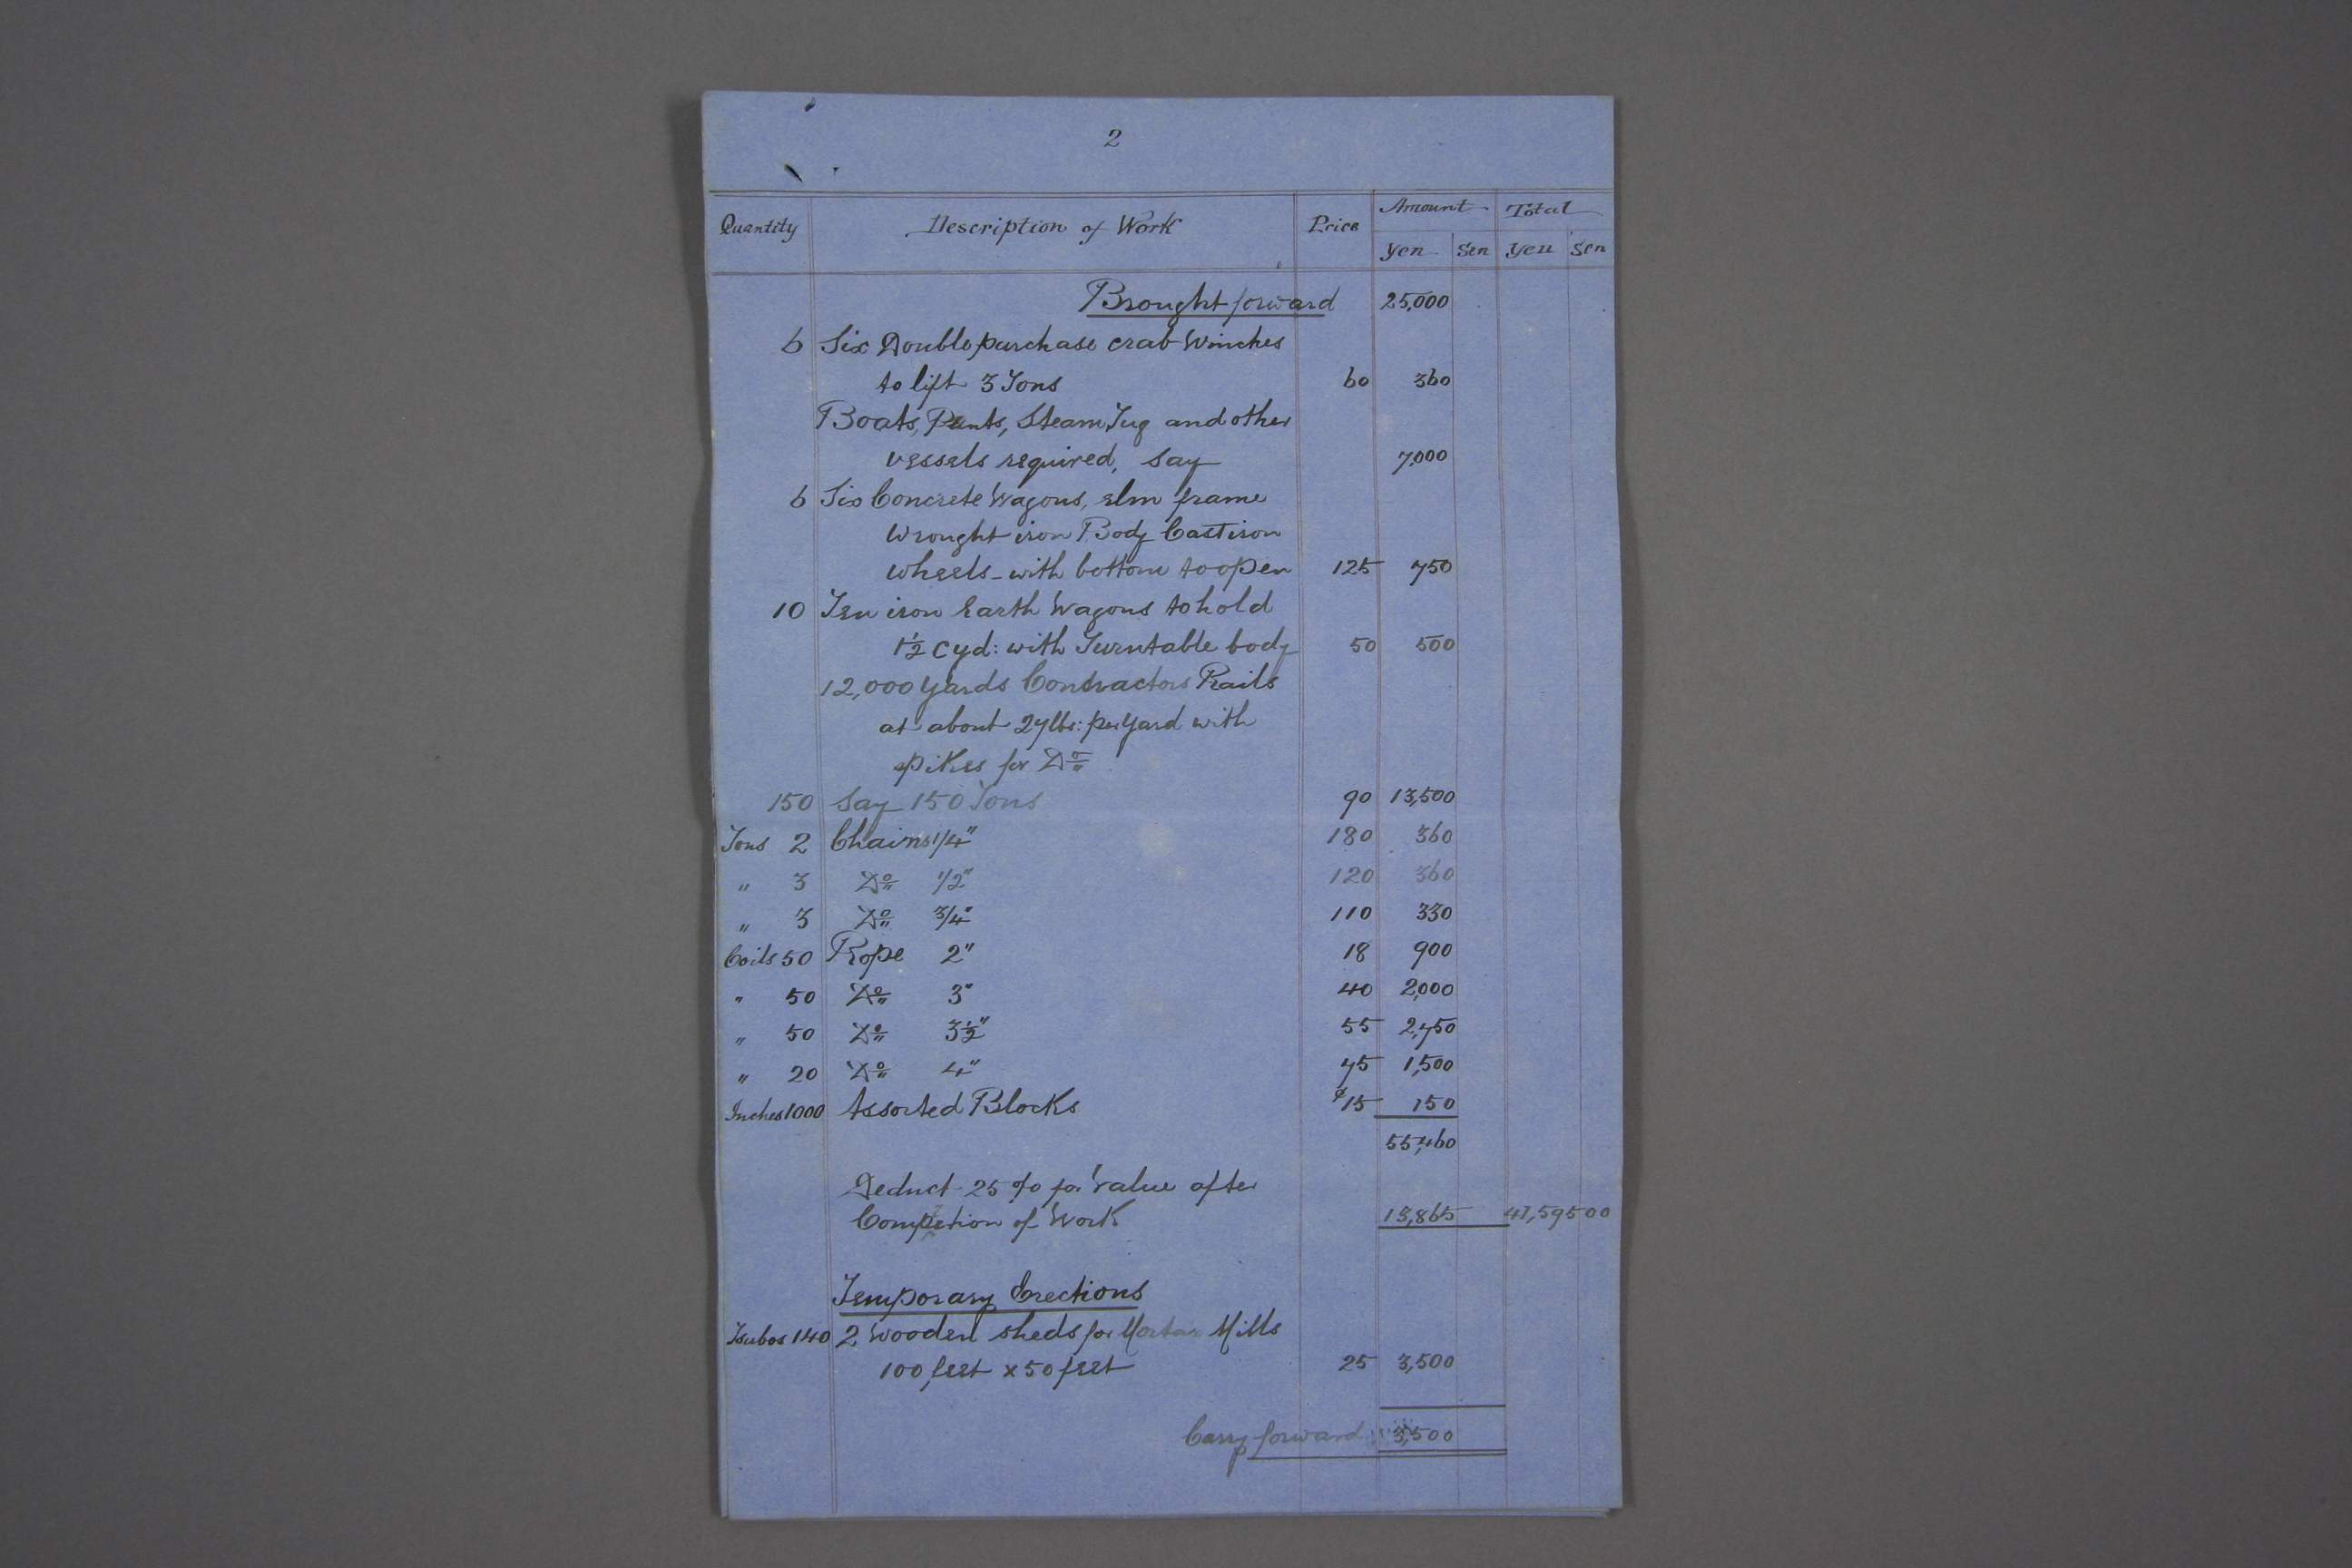 2
Quantity Description of Work Price Amount Total
Yen Sen Yen Sen
Brought forward 25,000
6 Six Double purchase crab Winches
to lift 3 Tons 60 360
Boats, Punts, Steam Tug and other
vessels required, say 7,000
6 Six Concrete Wagons, elm frame
Wrought iron Body Cast iron
wheels - with bottom to open 125 750
10 Ten iron Earth Wagons to hold
1½ c yd: with Turntable body 50 500
12,000 yards Contractors Rails
at about 27 lbs: per yard with
spikes for Do
150 Say 150 Tons 90 13,500
Tons 2 Chains 1/4" 180 360
" 3 Do 1/2" 120 360
" 3 Do 3/4" 110 330
Coils 50 Rope 2" 18 900
" 50 Do 3" 40 2,000
" 50 Do 3½" 55 2,750
" 20 Do 4" 75 1,500
Inches 1000 Assorted Blocks 15 150
55,460
Deduct 25 % for Value after
Competion of Work 13,865 41,595 00
Temporary Erections
Tsubos 140 2 wooden sheds for Mortar Mills
100 feet x 50 feet 25 3,500
Carry forward 3,500